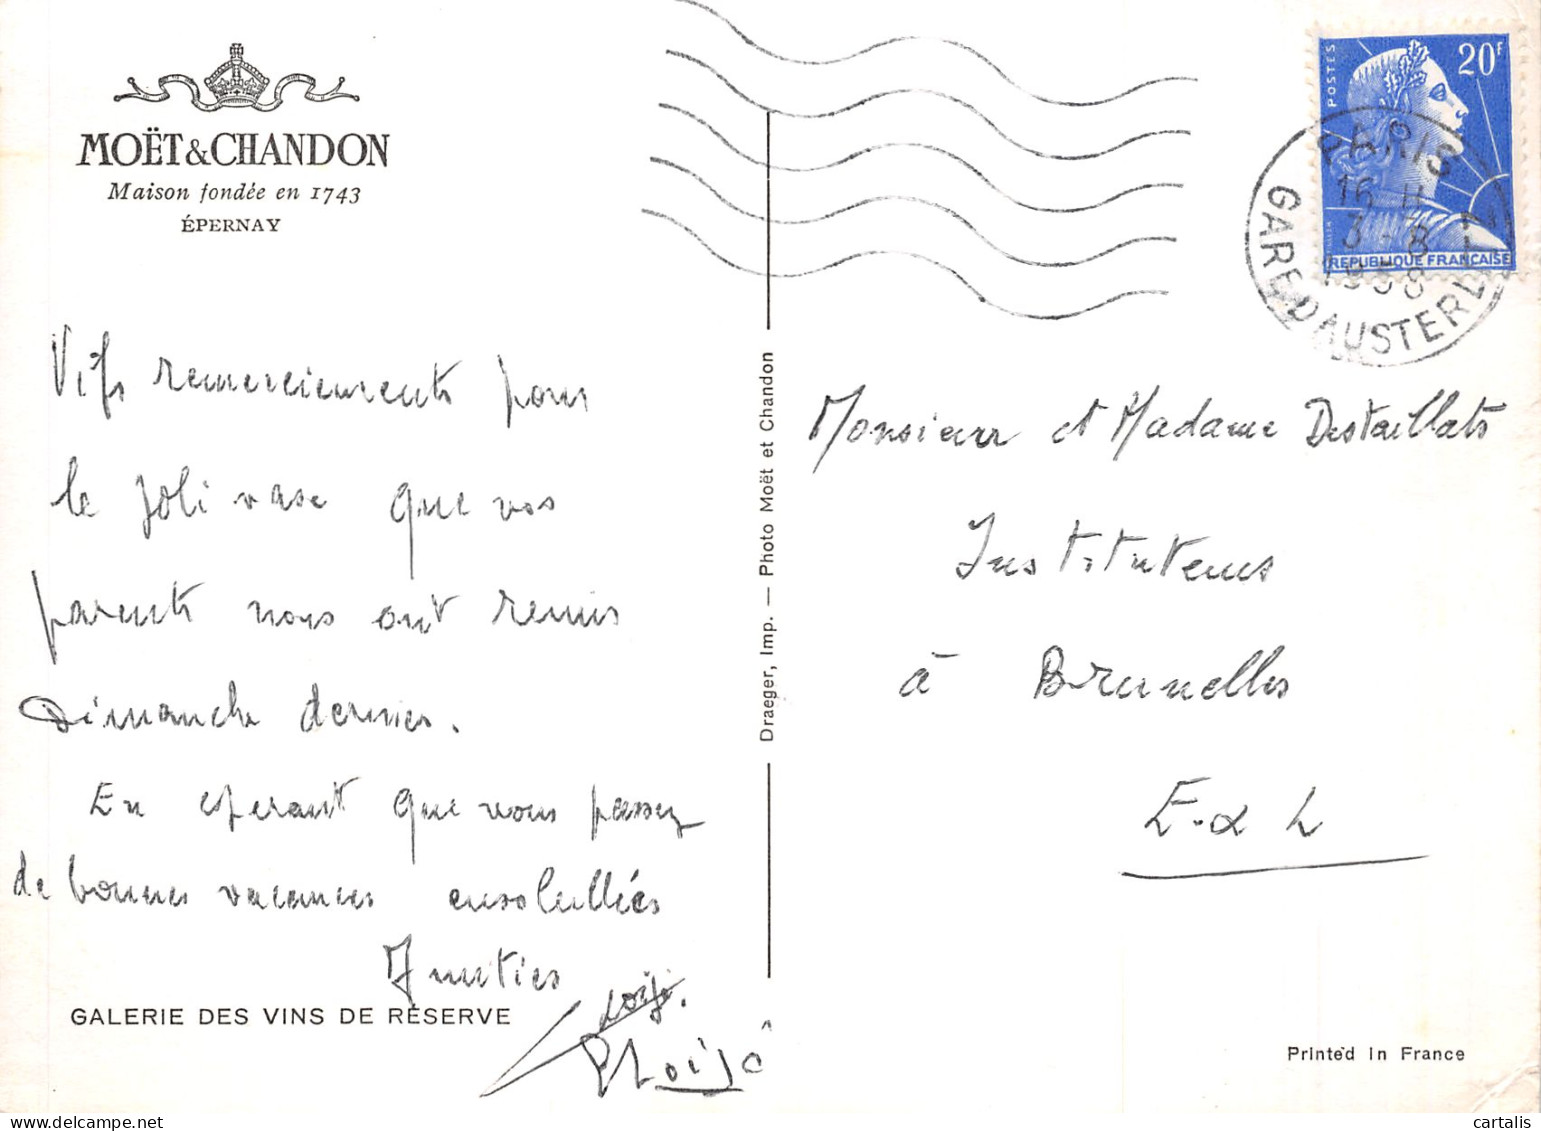 MOËT & CHANDON
Maison fondée en 1743
ÉPERNAY
Vifs remerciements pour
le joli vase que vos
parents nous ont remis
Dimanche dernier.
En espérant que vous passez
de bonnes vacances ensoleillées
Amitiés
GALERIE DES VINS DE RÉSERVE
Draeger, Imp. — Photo Moët et Chandon
POSTES
20F
REPUBLIQUE FRANÇAISE
PARIS
16 H
3 - 8
1958
GARE D'AUSTERLITZ
Monsieur et Madame Destaillats
Instituteurs
à Brunelles
E. & L
Printed in France
cartalis